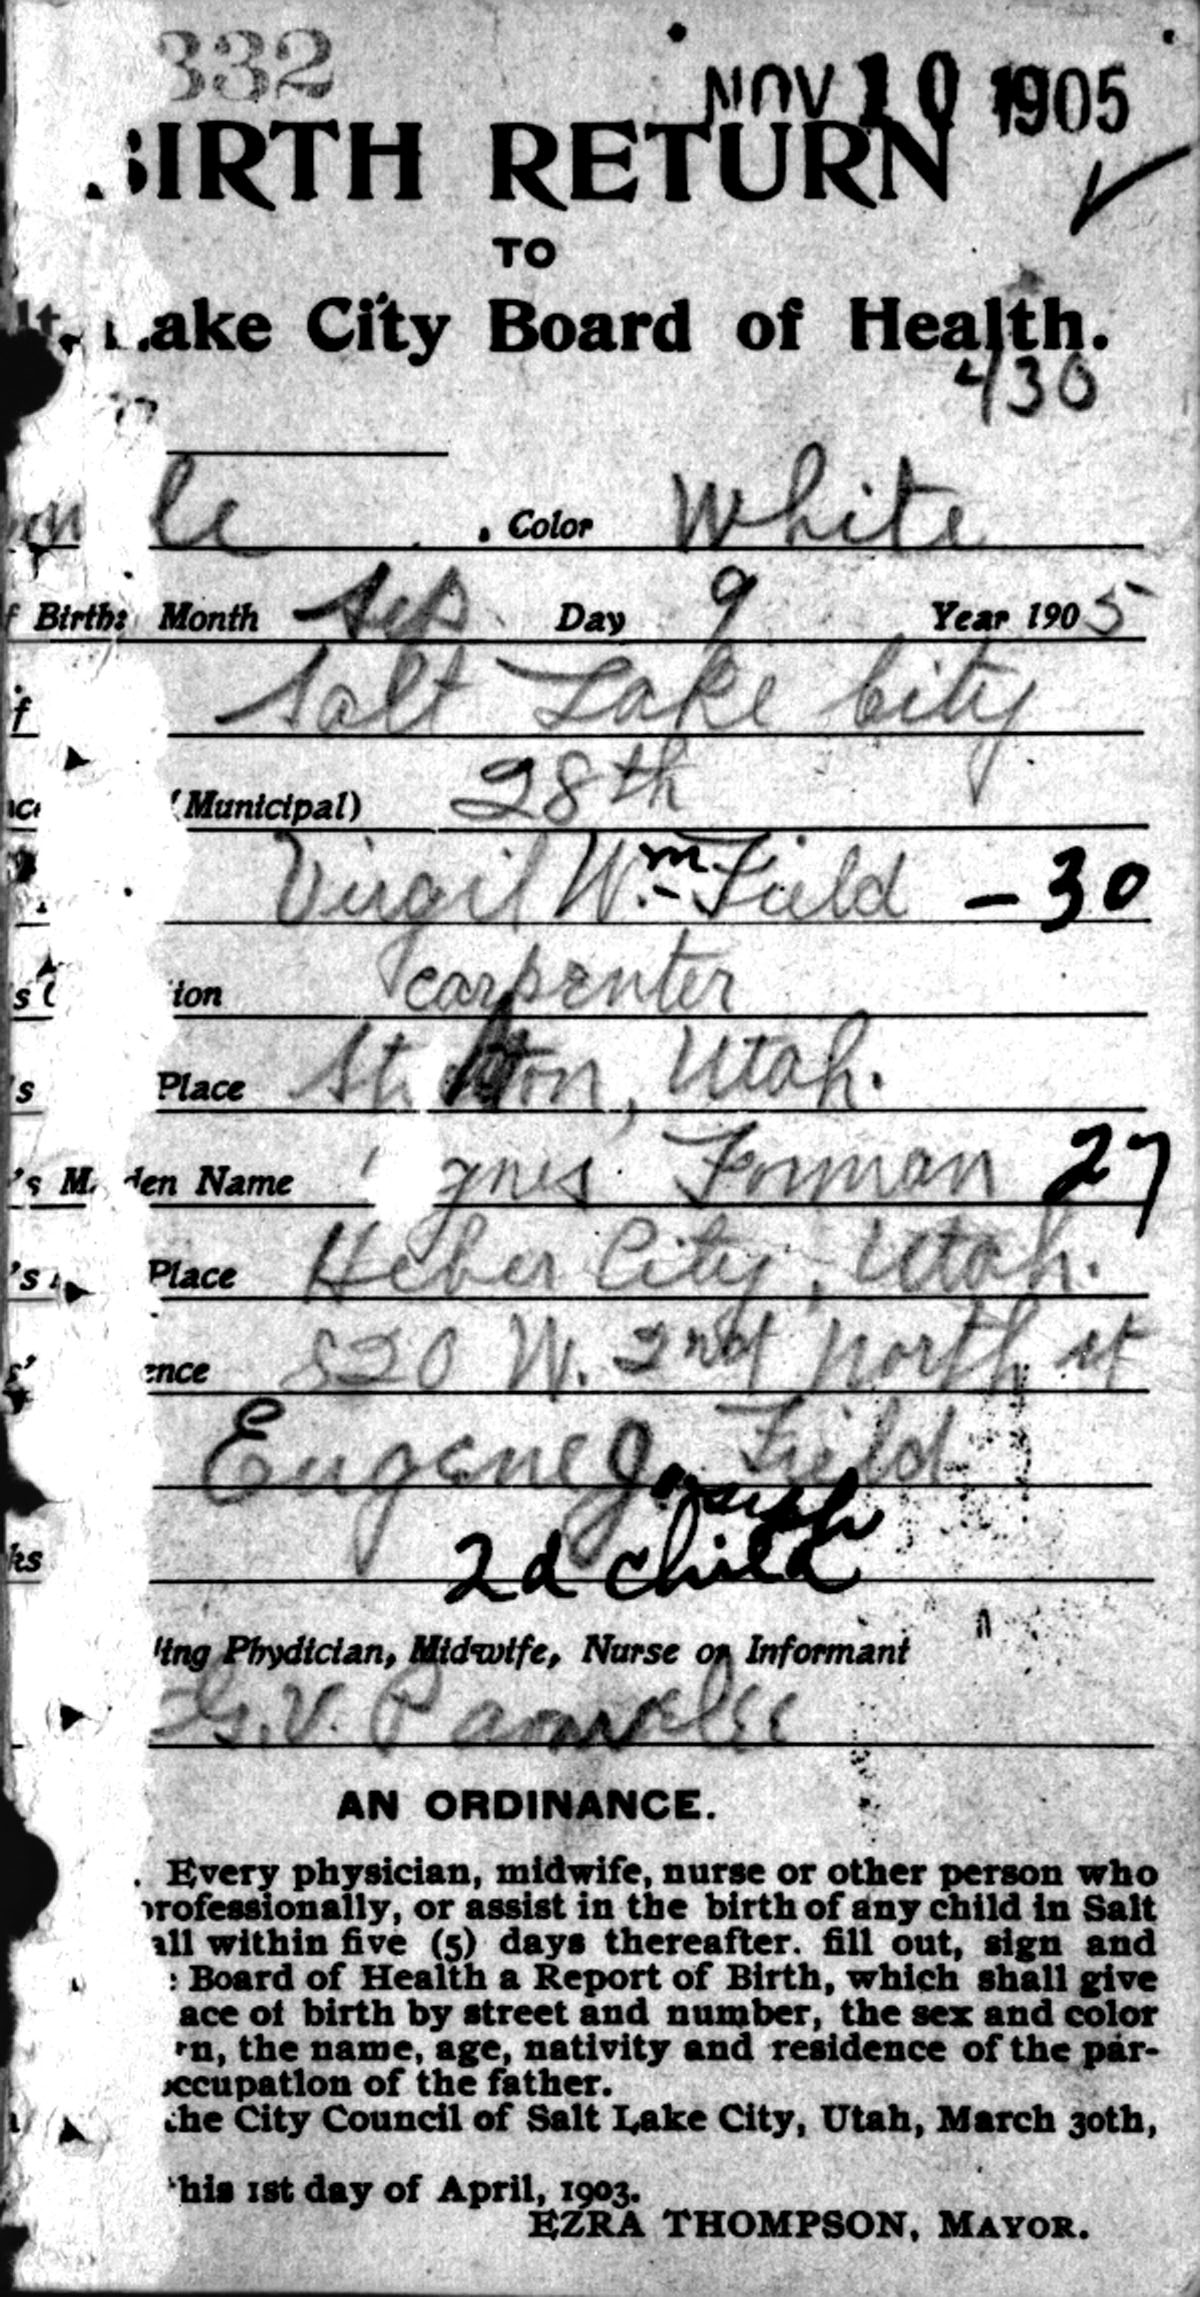 332
NOV 10 1905
BIRTH RETURN
TO
lt Lake City Board of Health.
430
le . Color White
f Birth: Month Sep Day 9 Year 1905
f Salt Lake City
(Municipal) 28th
Virgil Wm Field - 30
tion carpenter
's Place Utah.
's M den Name gnes Forman 27
's Place Heber City, Utah.
ence 520 W. 2nd North st
Eugene Joseph Field
ks 2d child
ing Phydician, Midwife, Nurse or Informant
G. V.
AN ORDINANCE.
. Every physician, midwife, nurse or other person who
professionally, or assist in the birth of any child in Salt
all within five (5) days thereafter. fill out, sign and
: Board of Health a Report of Birth, which shall give
ace of birth by street and number, the sex and color
rn, the name, age, nativity and residence of the par-
occupation of the father.
the City Council of Salt Lake City, Utah, March 30th,
his 1st day of April, 1903.
EZRA THOMPSON, MAYOR.